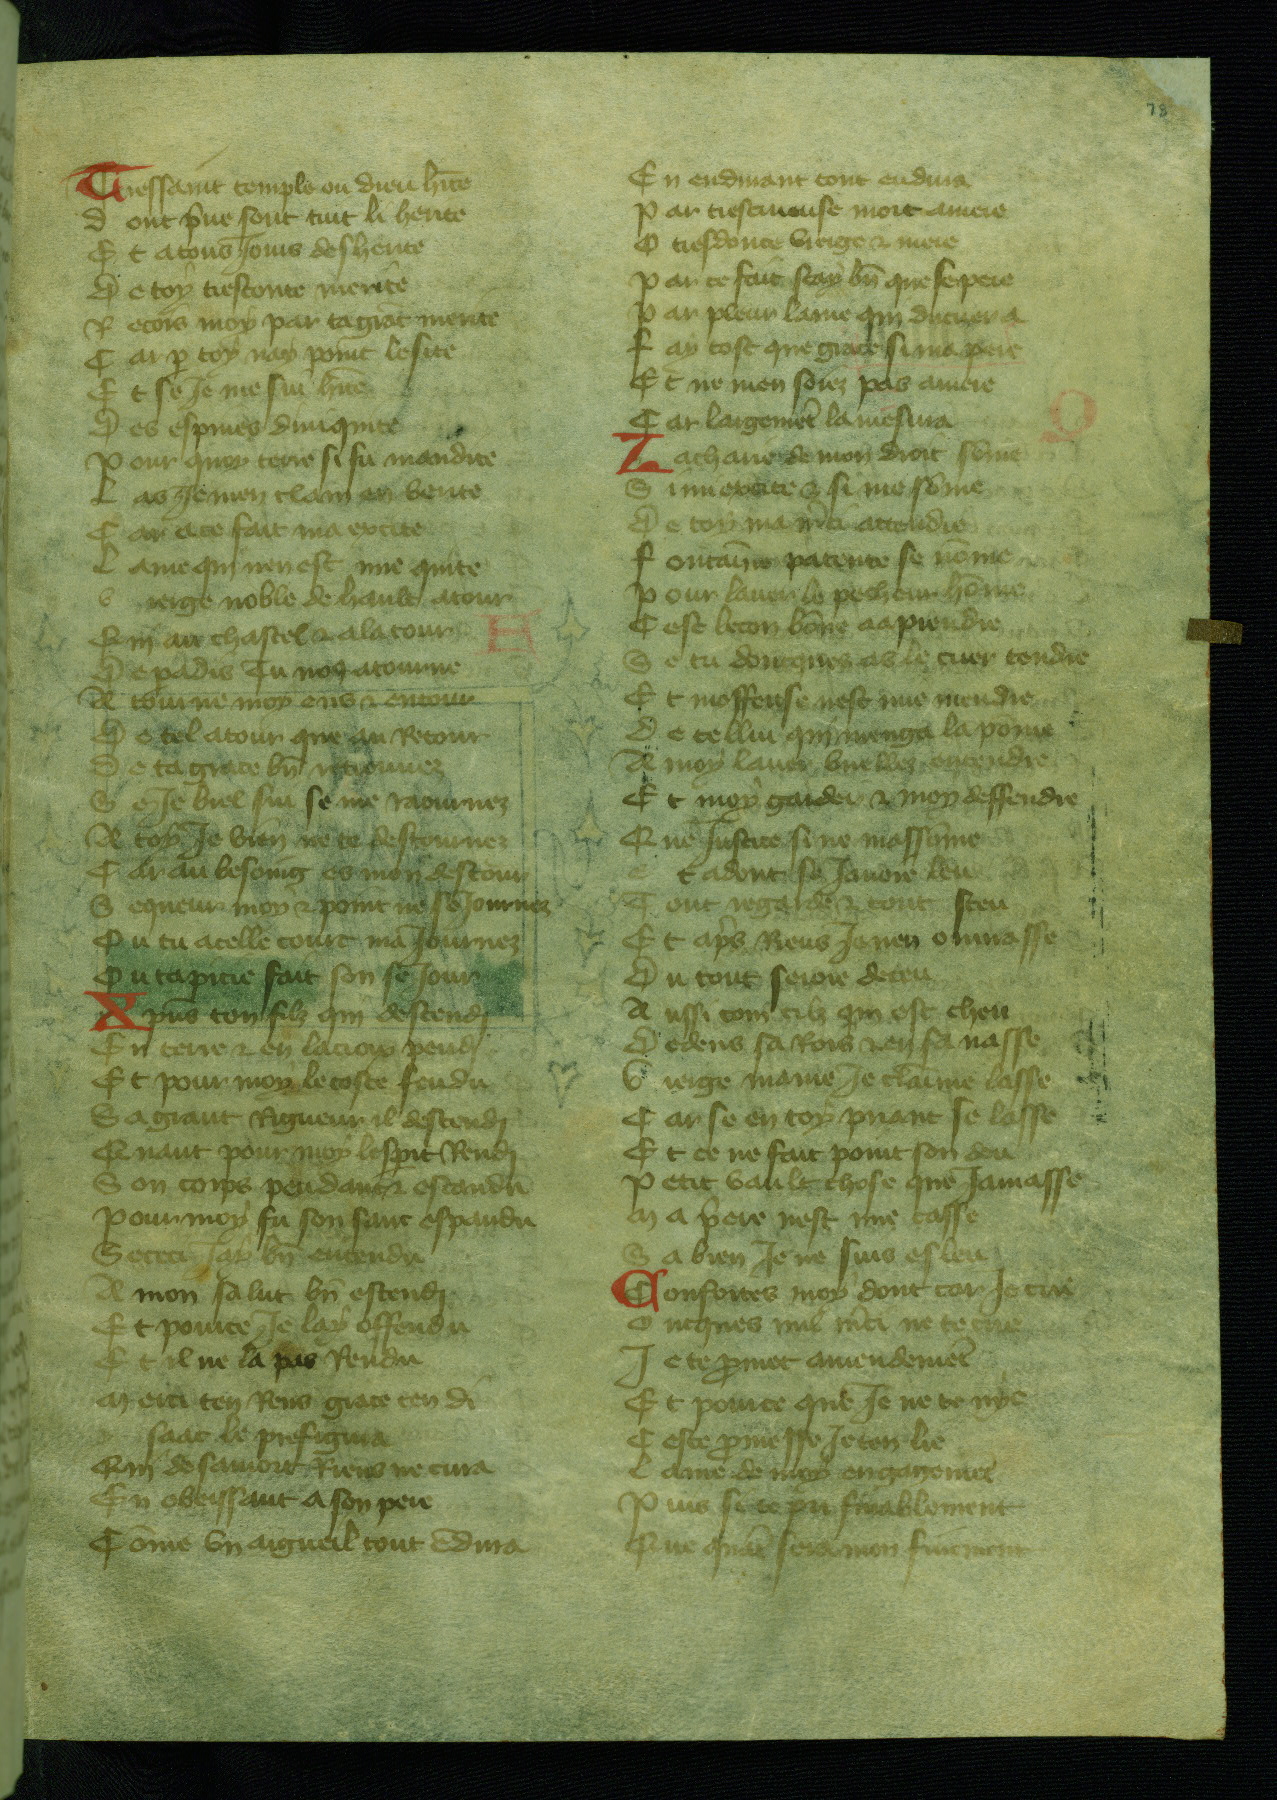 78
Tressaint temple ou dieu hīte
D ont p̄ue sont tuit li herite
E t a tous Jours desherite
D e toy tresconte merite
R ecois moy par ta grāt merite
C ar p̱ toy nay point le site
E t se Je me sui hīte
D es espines diniquite
P our quoy terre si fu maudite
L as Je men claim en verite
C ar a ce fait ma excite
L ame qui nen est mie quite
V ierge noble de hault atour
Q ui au chastel & a la tour
D e padis Tu noz atourne
A tourne moy ens & entour
D e tel atour que au Retour
D e ta grace bn̄ retournez
S e Je viel sui se me raournez
A toy Je vien ne te destournez
C ar au besoing es mon destour
S equeur moy & point ne seJournez
O u tu a celle court ma Journez
O u ta pitie fait son se Jour
X pūs ton filz qui descendi
E n terre & en la croix pendi
E t pour moy le coste fendu
S a grant Rigueur il descendi
Q uant pour moy lesp̄it Rendi
S on corps pendant & estandu
P our moy fu son sanc espandu
S e ceci Jay bn̄ entendu
A mon salut bn̄ estendi
E t pour ce Je lay offendu
E t il ne la pas Rendu
M erci ten Rens grace ten di
saac le prefigura
Q ui de sa mort Riens ne cura
E n obeissant a son pere
C ōme vn aigneil tout endura
E n endurant tout endura
P ar trescrueuse mort amere
O tresdouce vierge & mere
P ar ce fait scay bn̄ que se pere
P ar pleur lame qui dur cuer a
F ay tost que grace si ma pere
E t ne men soiez pas amere
C ar largemēt la mesura
Z acharie de mon droit sōme
S i mi excite & si me sōme
D e toy ma m̄ci attendre
F ontaīne patente se nōme
P our laver le pecheur hōme
C est lecon bōne a aprendre
S e tu donques as le cuer tendre
E t moffense nest mie mendre
D e cellui qui menga la pōme
A moy laver vueillez entendre
E t moy garder & moy deffendre
Q ue Justice si ne massōme
E t adont se Javoie leu
T out regarde & tout sceu
E t ap̄s Riens Je nen ouvrasse
D u tout seroie deceu
A ussi com cilz qui est cheu
D edens sa Rois & en sa nasse
V ierge marie Je claime lasse
C ar se en toy priant se lasse
E t ce ne fait point son deu
P etit vault chose que Jamasse
M a p̄ere nest mie casse
S a bien Je ne suis esleu
C onfortes moy dont cor Je crie
O ncques mil m̄ci ne te crie
J e te p̄met amendemēt
E t pour ce que Je ne te nye
C este p̄messe Je ten lie
L ame de moy en gagemēt
P uis si te pri finablement
Q ue quāt sera mon finement